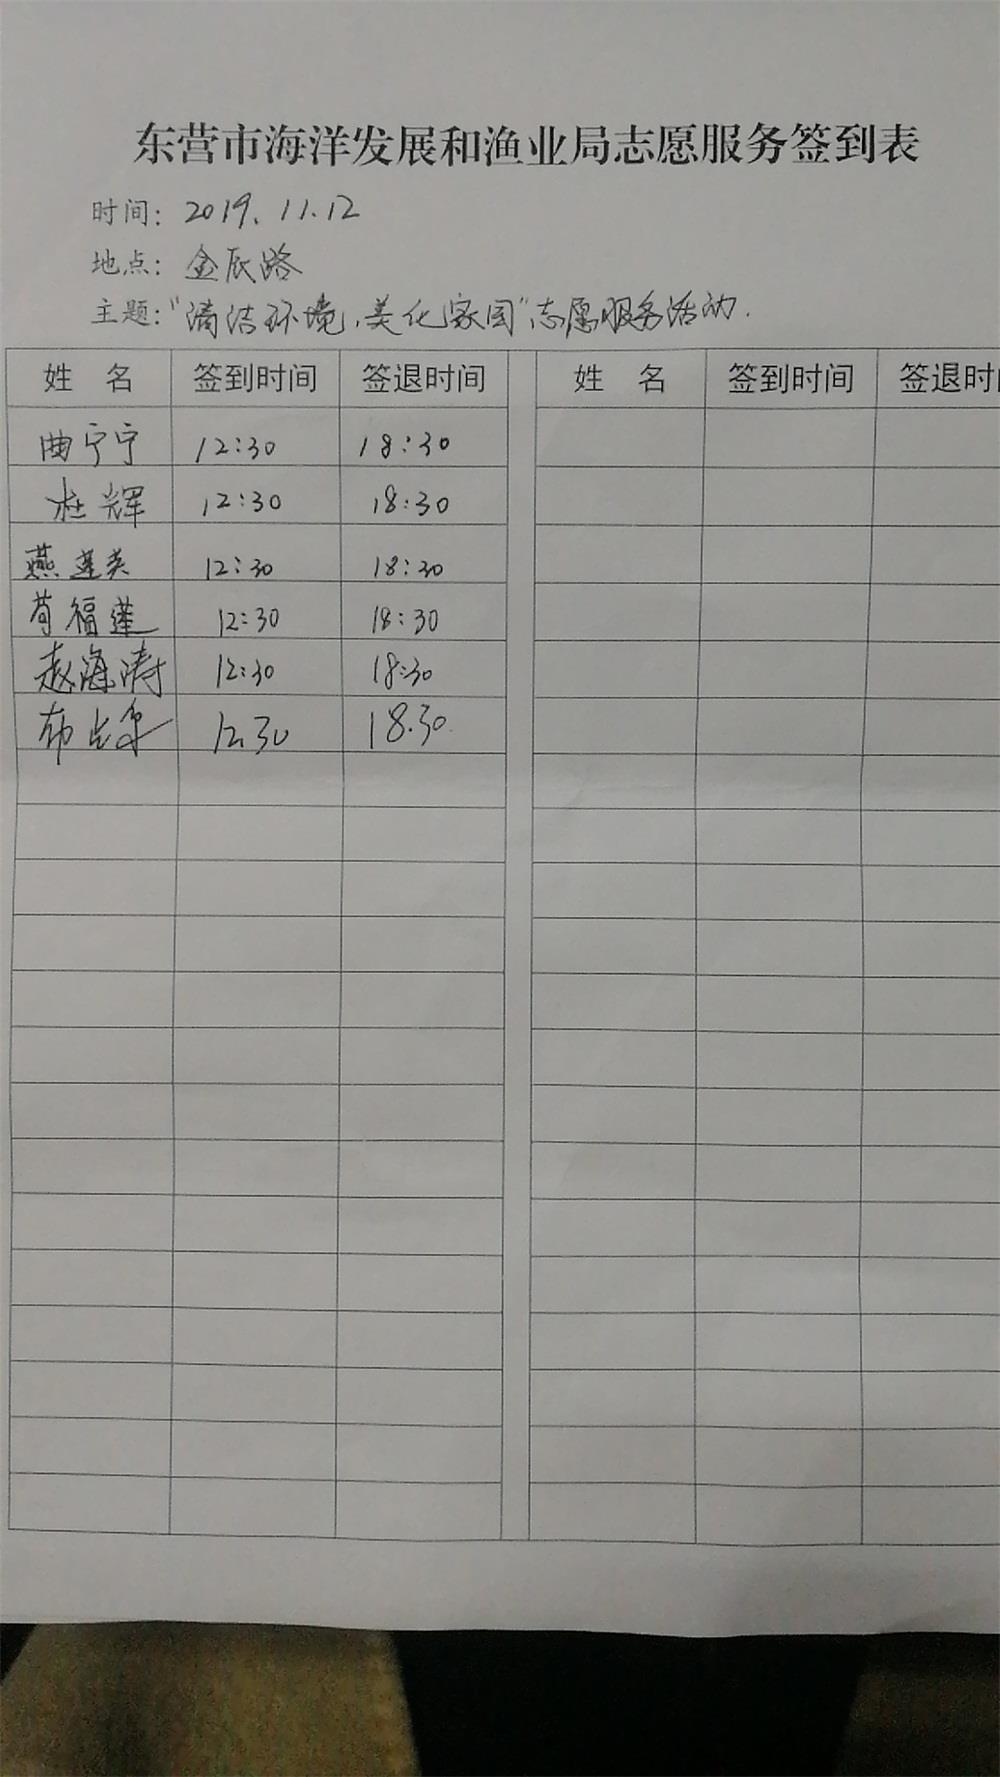 东营市海洋发展和渔业局志愿服务签到表
时间：2019.11.12
地点：金辰路
主题："清洁环境，美化家园"志愿服务活动.
姓 名 签到时间 签退时间 姓 名 签到时间 签退时
曲宁宁 12:30 18:30
杜辉 12:30 18:30
燕莲英 12:30 18:30
荀福莲 12:30 18:30
赵海涛 12:30 18:30
12.30 18.30